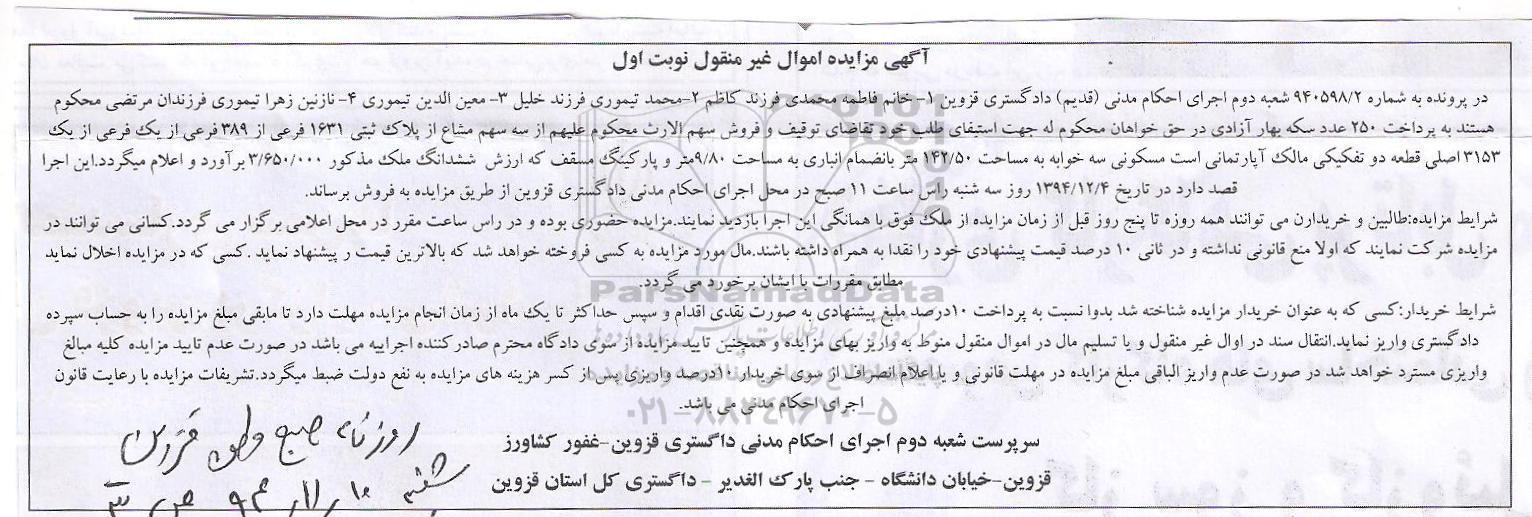 آگهی مزایده اموال غیر منقول نوبت اول
در پرونده به شماره ۹۴۰۵۹۸/۲ شعبه دوم اجرای احکام مدنی (قدیم) دادگستری قزوین ۱- خانم فاطمه محمدی فرزند کاظم ۲-محمد تیموری فرزند خلیل ۳- معین الدین تیموری ۴- نازنین زهرا تیموری فرزندان مرتضی محکوم
هستند به پرداخت ۲۵۰ عدد سکه بهار آزادی در حق خواهان محکوم له جهت استیفای طلب خود تقاضای توقیف و فروش سهم الارث محکوم علیهم از سه سهم مشاع از پلاک ثبتی ۱۶۳۱ فرعی از ۳۸۹ فرعی از یک فرعی از یک
۳۱۵۳ اصلی قطعه دو تفکیکی مالک آپارتمانی است مسکونی سه خوابه به مساحت ۱۴۲/۵۰ متر بانضمام انباری به مساحت ۹/۸۰متر و پارکینگ مسقف که ارزش ششدانگ ملک مذکور ۳/۶۵۰/۰۰۰ برآورد و اعلام میگردد.این اجرا
قصد دارد در تاریخ ۱۳۹۴/۱۲/۴ روز سه شنبه راس ساعت ۱۱ صبح در محل اجرای احکام مدنی دادگستری قزوین از طریق مزایده به فروش برساند.
شرایط مزایده:طالبین و خریدارن می توانند همه روزه تا پنج روز قبل از زمان مزایده از ملک فوق با همانگی این اجرا بازدید نمایند.مزایده حضوری بوده و در راس ساعت مقرر در محل اعلامی برگزار می گردد.کسانی می توانند در
مزایده شرکت نمایند که اولا منع قانونی نداشته و در ثانی ۱۰ درصد قیمت پیشنهادی خود را نقدا به همراه داشته باشند.مال مورد مزایده به کسی فروخته خواهد شد که بالاترین قیمت ر پیشنهاد نماید .کسی که در مزایده اخلال نماید
مطابق مقررات با ایشان برخورد می گردد.
ParsNamadData
شرایط خریدار:کسی که به عنوان خریدار مزایده شناخته شد بدوا نسبت به پرداخت ۱۰درصد مبلغ پیشنهادی به صورت نقدی اقدام و سپس حداکثر تا یک ماه از زمان انجام مزایده مهلت دارد تا مابقی مبلغ مزایده را به حساب سپرده
دادگستری واریز نماید.انتقال سند در اوال غیر منقول و یا تسلیم مال در اموال منقول منوط به واریز بهای مزایده و همچنین تایید مزایده از سوی دادگاه محترم صادر کننده اجراییه می باشد در صورت عدم تایید مزایده کلیه مبالغ
واریزی مسترد خواهد شد در صورت عدم واریز الباقی مبلغ مزایده در مهلت قانونی و یا اعلام انصراف از سوی خریدار ۱۰درصد واریزی پس از کسر هزینه های مزایده به نفع دولت ضبط میگردد.تشریفات مزایده با رعایت قانون
اجرای احکام مدنی می باشد.
۰۲۱-۸۸۳۴۹۶۷۰-۵
سرپرست شعبه دوم اجرای احکام مدنی داگستری قزوین-غفور کشاورز
قزوین-خیابان دانشگاه - جنب پارک الغدیر - داگستری کل استان قزوین
روزنامه صبح ولایت قزوین
شنبه ۱۰/۱۱/۹۴ ص ۳